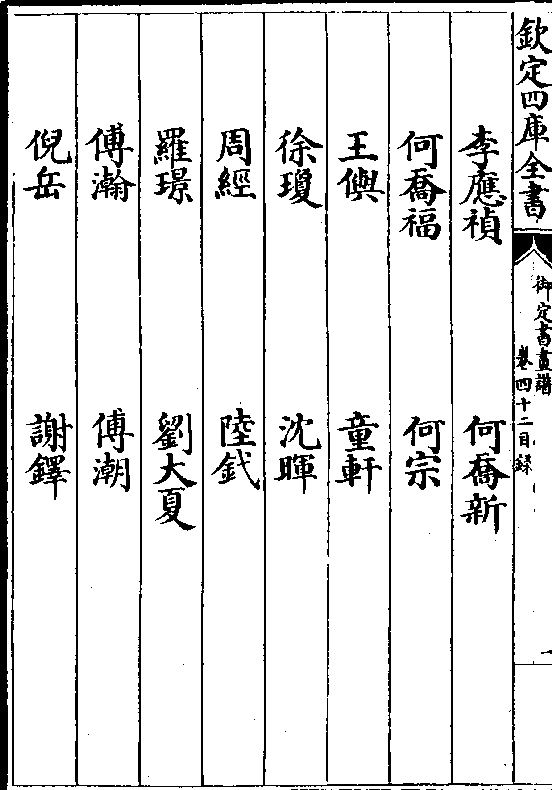 欽定四庫全書
御定書畫譜
卷四十二目録
李應禎　何喬新
何喬福　何宗
王㒜　童軒
徐瓊　沈暉
周經　陸釴
羅璟　劉大夏
傅瀚　傅潮
倪岳　謝鐸